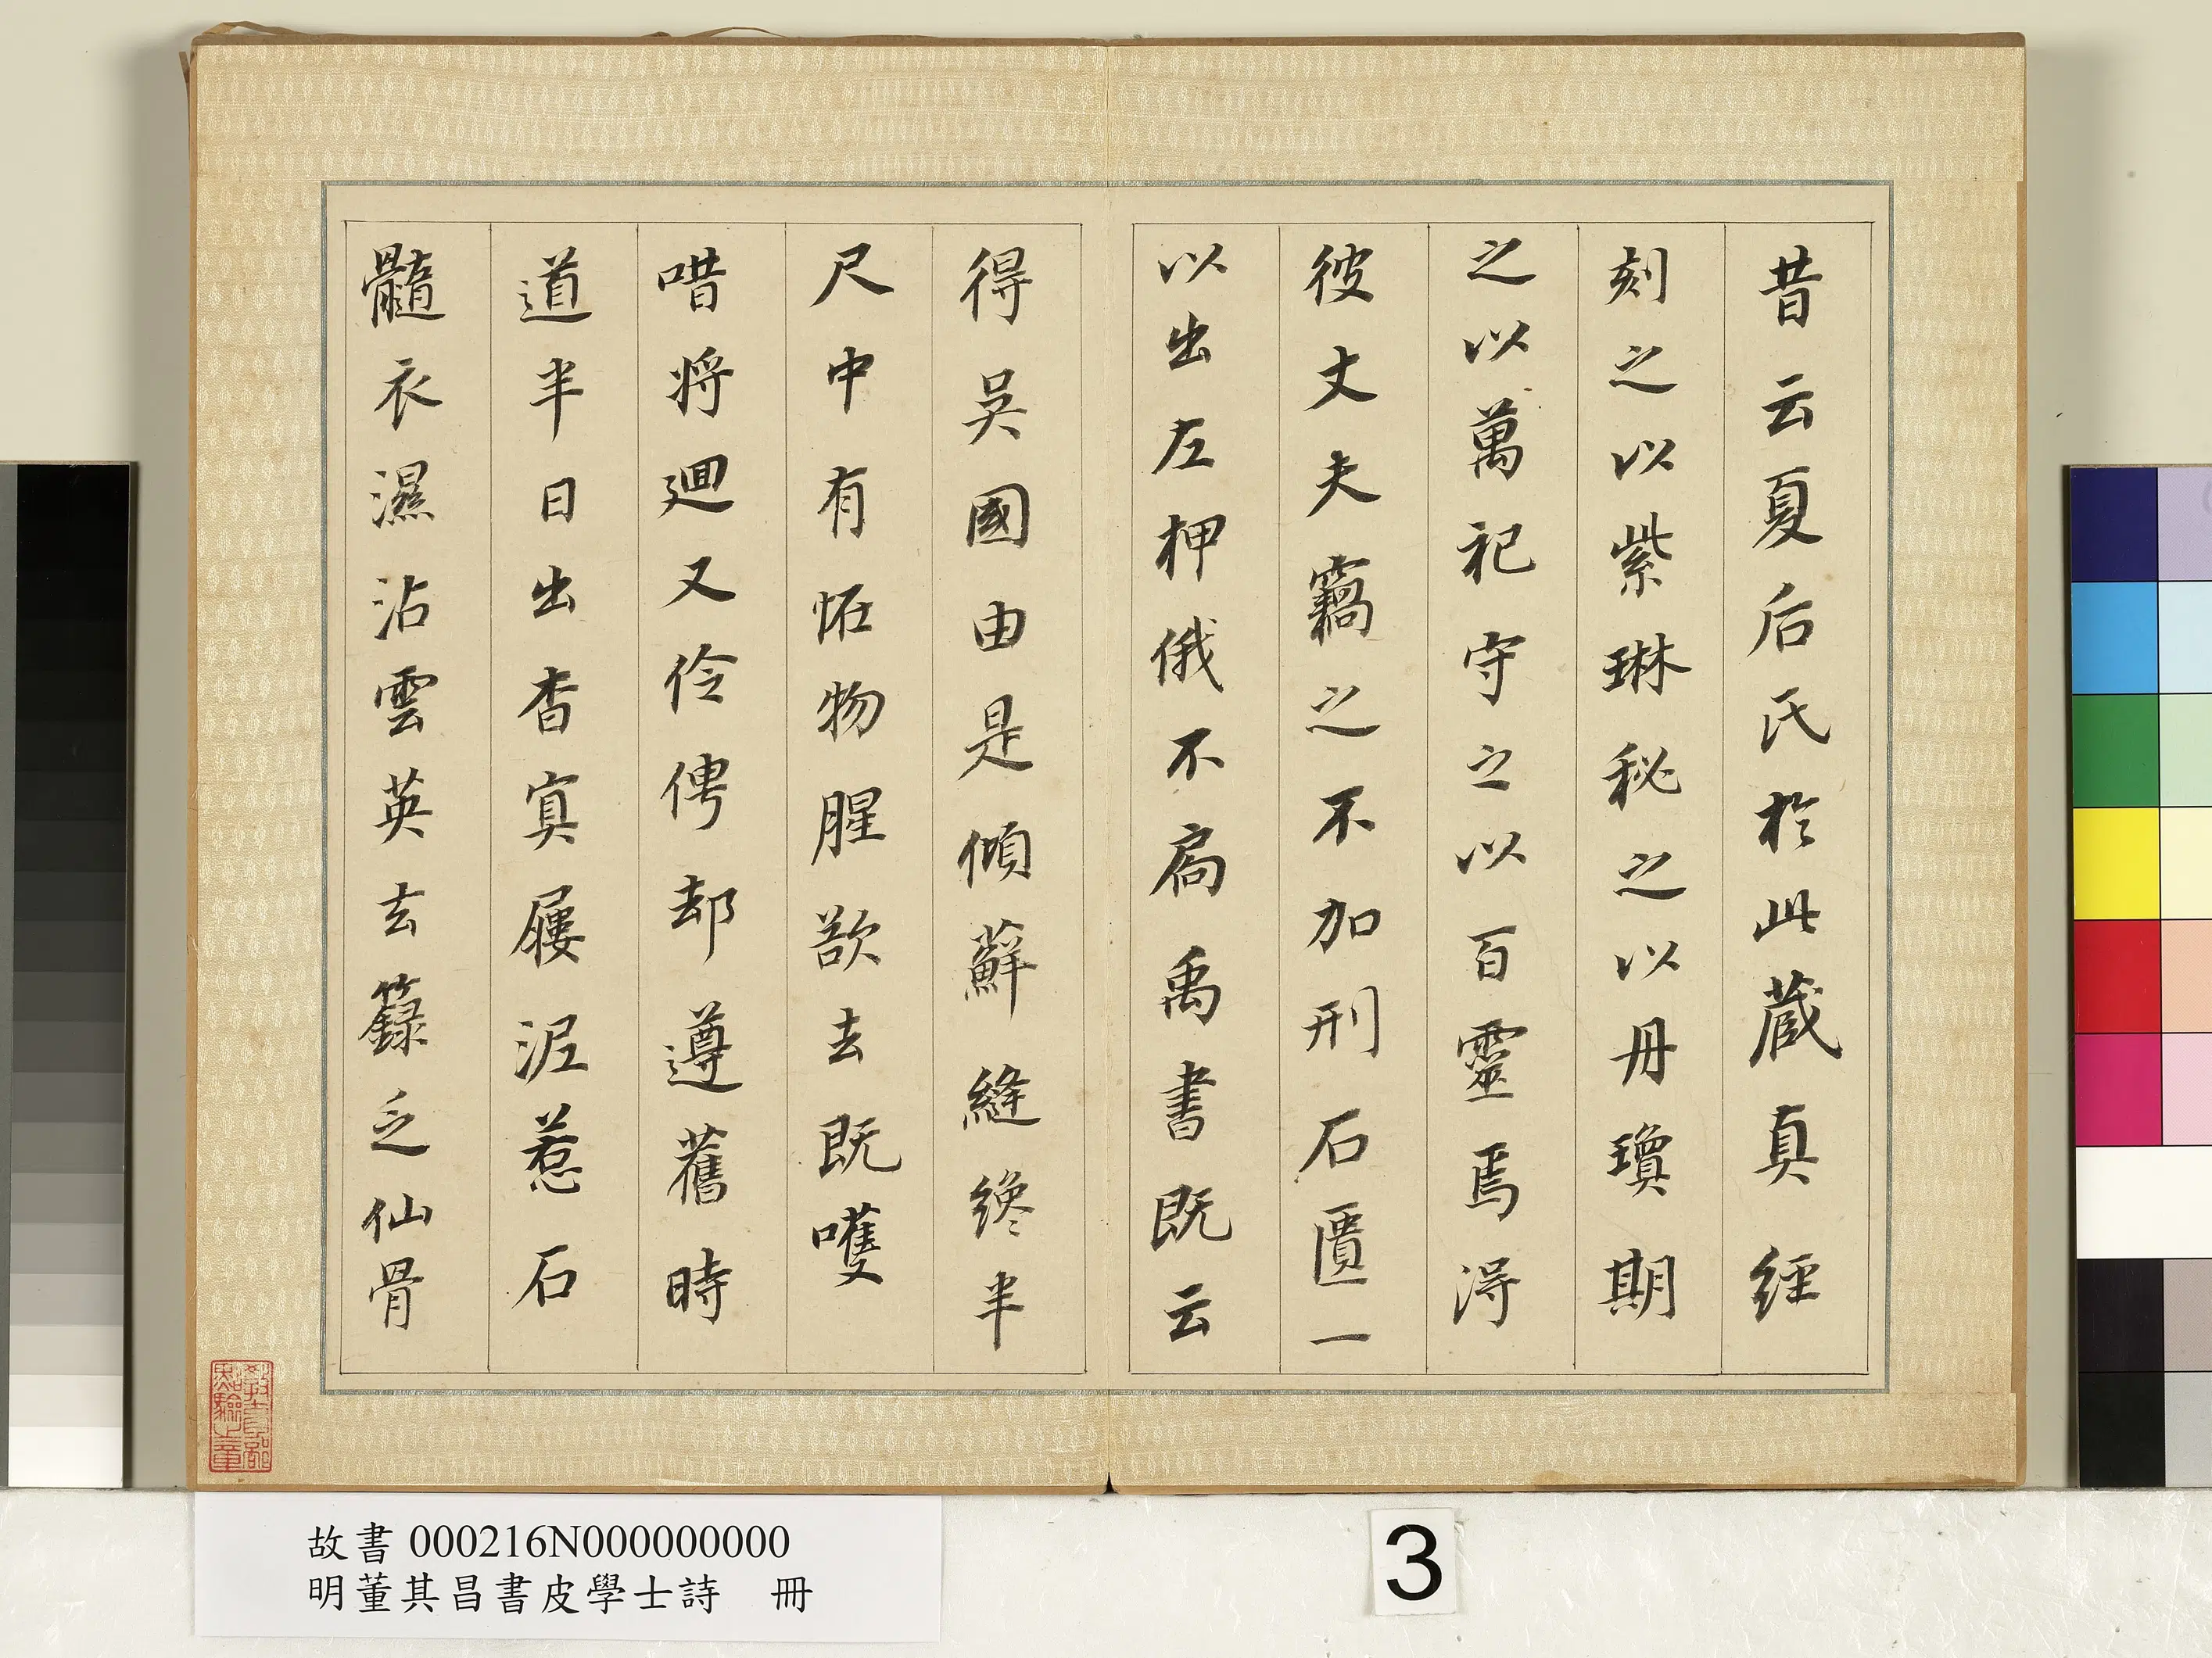 昔云夏后氏於此藏真經
刻之以紫琳秘之以丹瓊期
之以萬祀守之以百靈焉得
彼丈夫竊之不加刑石匱一
以出左神俄不扃禹書既云
得吳國由是傾蘚縫纔半
尺中有怪物腥欲去既嚄
唶將迴又伶俜却遵舊時
道半日出杳冥屨泥惹石
髓衣濕沾雲英玄籙乏仙骨
故書 000216N000000000
明董其昌書皮學士詩 冊
3